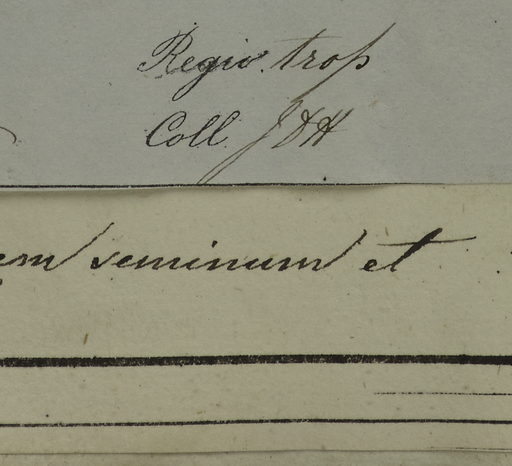 Regio trop
Coll. JDH
seminum et